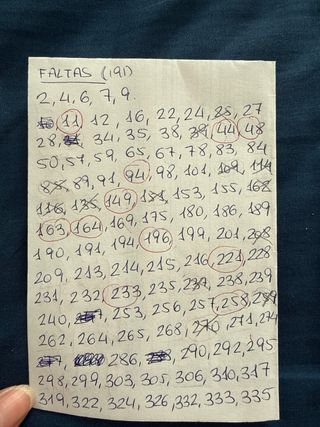 FALTAS (191)
2, 4, 6, 7, 9.
11, 12, 16, 22, 24, 25, 27
28, 34, 35, 38, 39, 44, 48
50, 57, 59, 65, 67, 78, 83, 84
88, 89, 91, 94, 98, 101, 109, 114
116, 135, 149, 151, 153, 155, 162
163, 164, 169, 175, 180, 186, 189
190, 191, 194, 196, 199, 201, 208
209, 213, 214, 215, 216, 221, 228
231, 232, 233, 235, 237, 238, 239
240, 253, 256, 257, 258, 259
262, 264, 265, 268, 270, 271, 274
286, 290, 292, 295
298, 299, 303, 305, 306, 310, 317
319, 322, 324, 326, 332, 333, 335